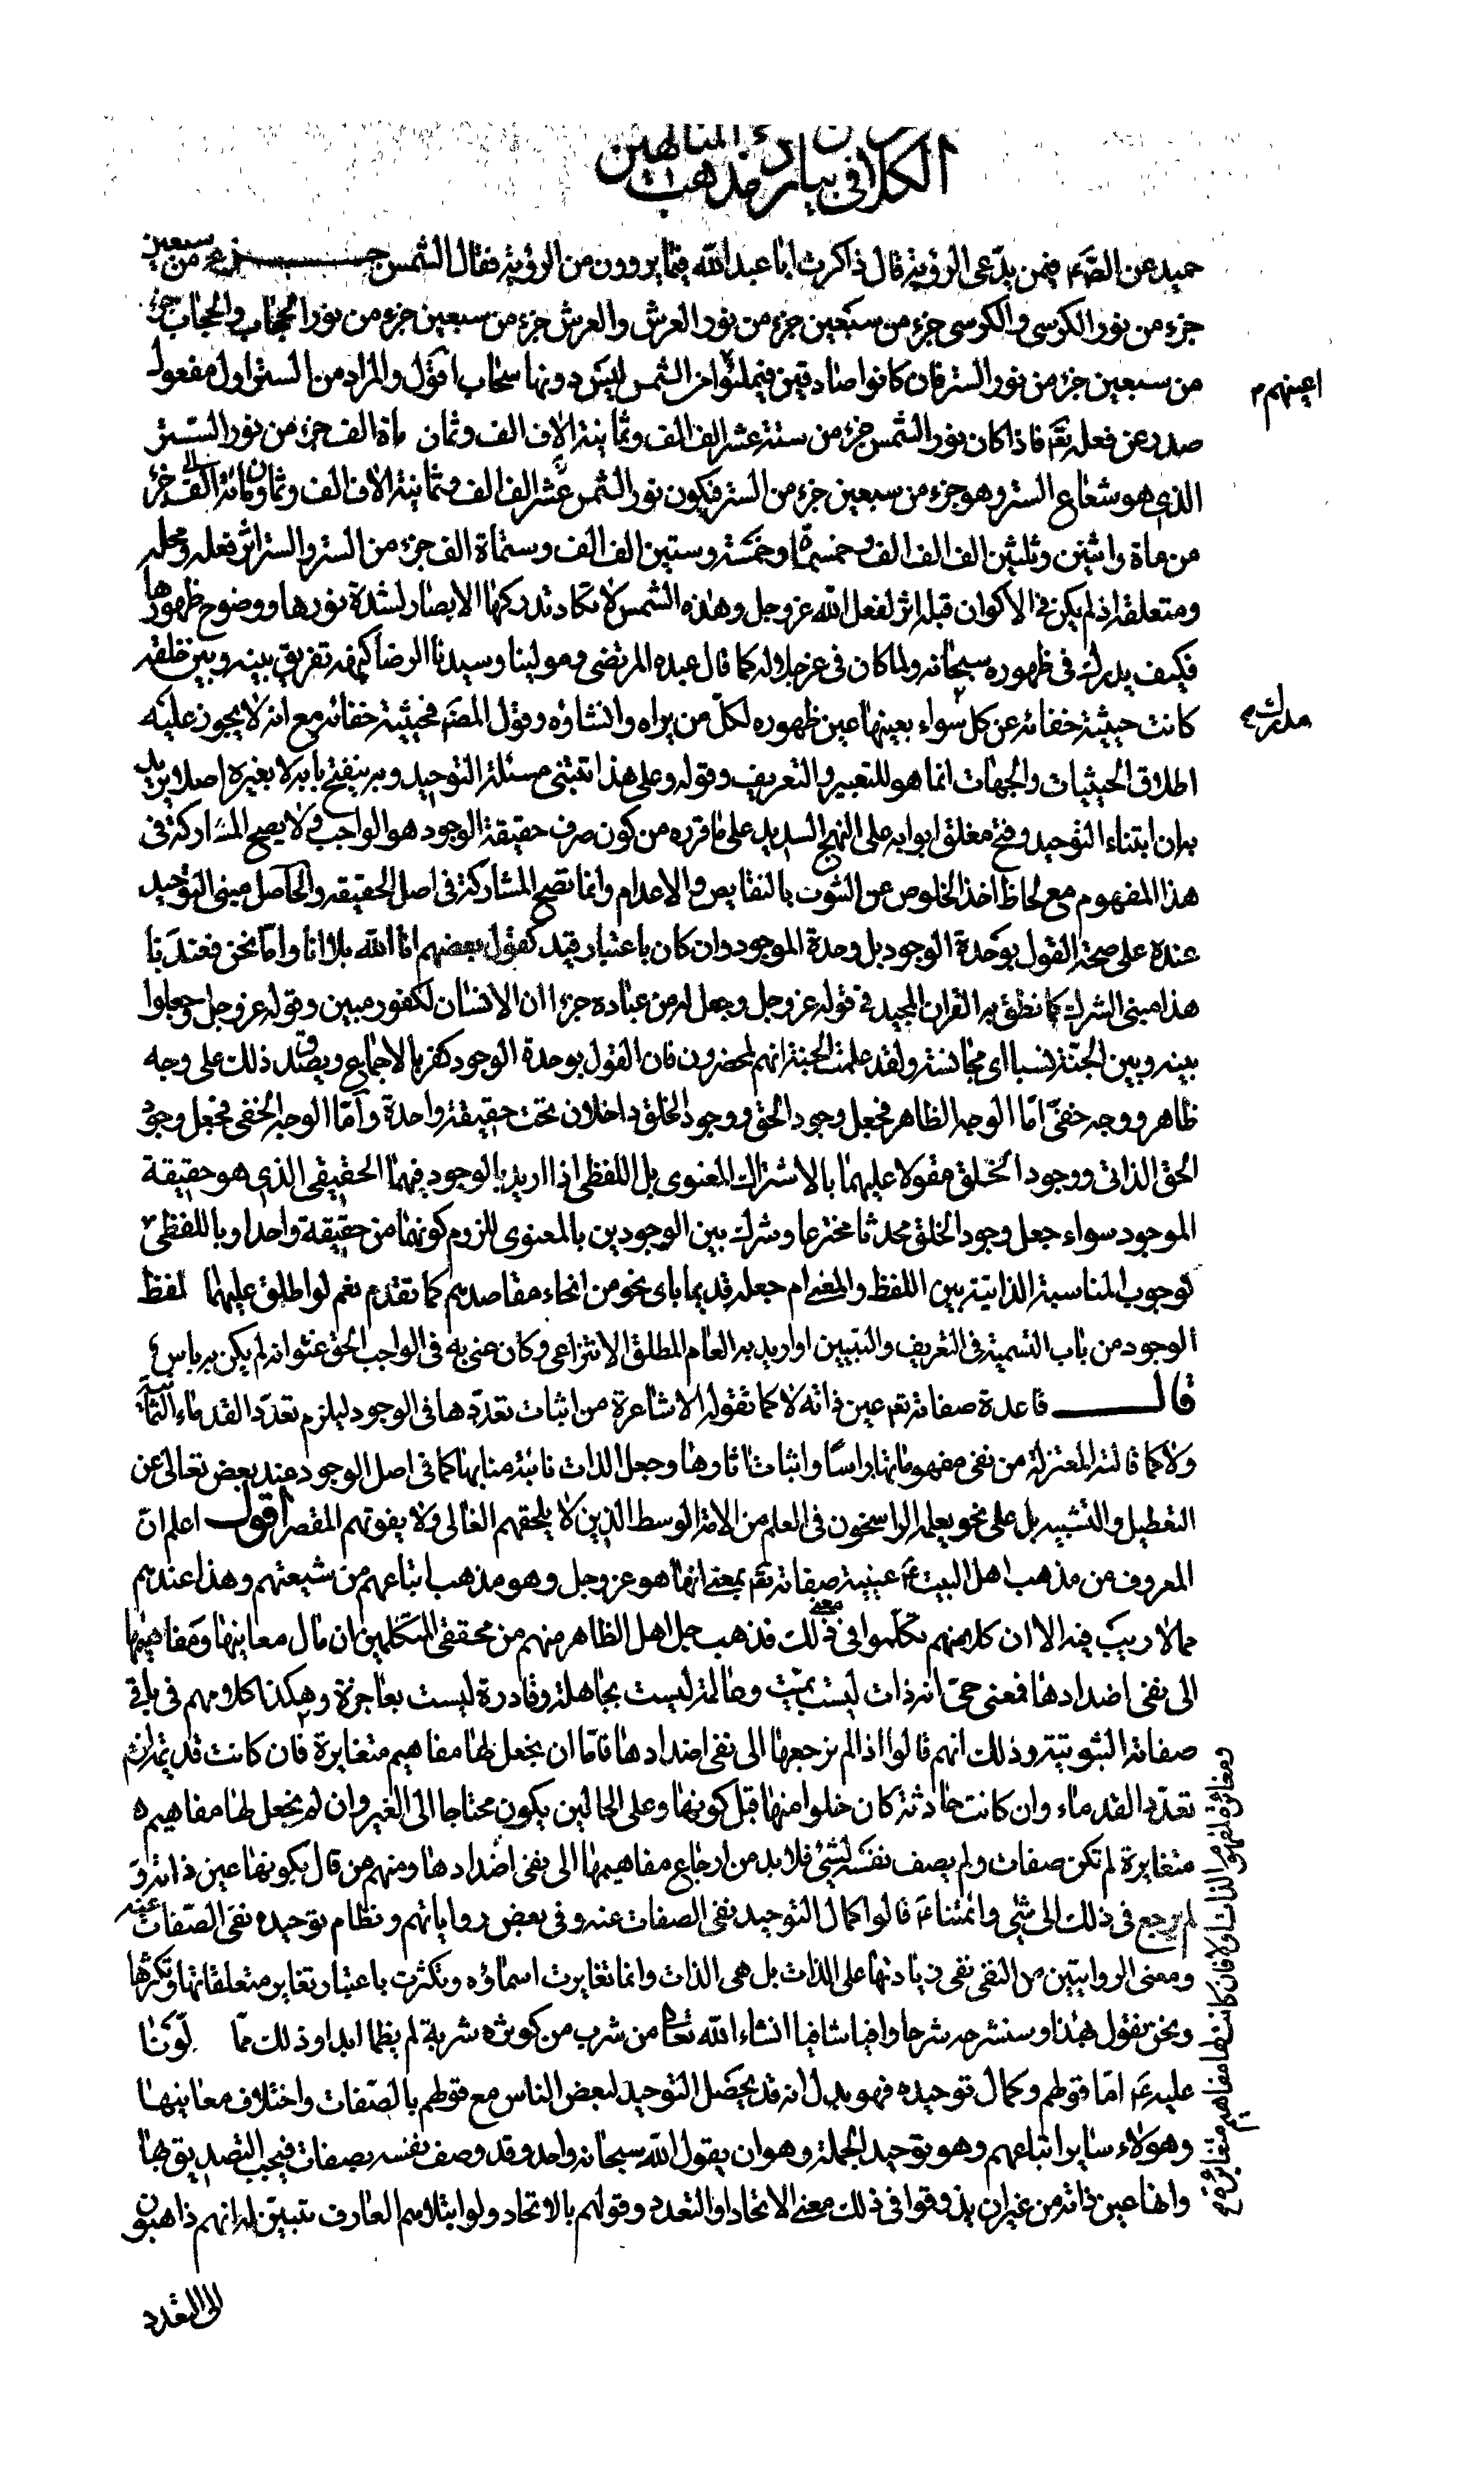 المتالهين
الكلام في بيان مذهب
حميد عن الصّم فيمن يدّعى الرؤية قال ذاكرت ابا عبد الله فيما يروون من الرؤية فقال الشمس جزء من سبعين
جزء من نور الكرسى والكرسى جزء من سبعين جزء من نور العرش والعرش جزء من سبعين جزء من نور الحجاب والحجاب جزء
من سبعين جزء من نور الستر فان كانوا صادقين فيملئوا من الشمس ليس دونها سحاب اقول والمراد من الستر اول مفعول
اعينهم
صدر عن فعله تعم فاذا كان نور الشمس جزء من ستة عشر الف الف وثمانية الاف الف وثمان ماة الف جزء من نور الستر
الذى هو شعاع الستر وهو جزء من سبعين جزء من الستر فيكون نور الشمس عشر الف الف وثمانية الاف الف وثمان مائة الف جزء
من ماة واثنين وثلثين الف الف الف وخمسماة وخمسة وستين الف الف وستماة الف جزء من الستر والستر اثر فعله ومحله
ومتعلقه اذ لم يكن فى الاكوان قبله اثر لفعل الله عز وجل وهذه الشمس لا تكاد تدركها الابصار لشدة نورها ووضوح ظهورها
فكيف يدرك فى ظهوره سبحانه ولما كان فى عز جلاله كما قال عبده المرتضى ومولينا وسيدنا الرضا كنهه تفريق بينه وبين خلقه
كانت حيثية خفائه عن كل سواء بعينها عين ظهوره لكل من يراه وانشاؤه وقول المصنم فحيثية خفائه مع انه لا يجوز عليه
مدرك
اطلاق الحيثيات والجهات انما هو للتعبير والتعريف وقوله وعلى هذا تبتنى مسئلة التوحيد وبه ينفتح بابه لا بغيره اصلا يريد
به ان ابتناء التوحيد وفتح مغلق ابوابه على النهج السديد على ما قرره من كون صرف حقيقة الوجود هو الواجب ولا يصح المشاركة فى
هذا المفهوم مع لحاظ اخذ الخلوص عن الشوب بالنقايص والاعدام وانما تصح المشاركة فى اصل الحقيقة والحاصل مبنى التوحيد
عنده على صحة القول بوحدة الوجود بل وحدة الموجود وان كان باعتبار قيد كقول بعضهم انا الله بلا انا وامّا نحن فعندنا
هذا مبنى الشرك كما نطق به القران المجيد فى قوله عز وجل وجعل له من عباده جزءا ان الانسان لكفور مبين وقوله عز وجل وجعلوا
بينه وبين الجنّة نسبا اى مجانسة ولقد علمت الجنة انهم لمحضرون فان القول بوحدة الوجود كفر بالاجماع ويصدق ذلك على وجه
ظاهر ووجه خفىّ امّا الوجه الظاهر فجعل وجود الحق ووجود الخلق داخلان تحت حقيقة واحدة وامّا الوجه الخفى فجعل وجود
الحق الذاتى ووجود الخلق مقولا عليهما بالاشتراك المعنوى بل اللفظى اذا اريد بالوجود فيهما الحقيقى الذى هو حقيقة
الموجود سواء جعل وجود الخلق محدثا مخترعا وشرك بين الوجودين بالمعنوى للزوم كونهما من حقيقة واحدا وباللفظى
لوجوب المناسبة الذاتية بين اللفظ والمعنى ام جعله قديما باى نحو من انحاء مقاصدهم كما تقدم نعم لو اطلق عليهما لفظ
الوجود من باب التسمية فى التعريف والتبيين او اريد به العام المطلق الانتزاعى وكان عنى به فى الواجب الحق عنوانه لم يكن به باس
قال قاعدة صفاته تعم عين ذاته لا كما تقوله الاشاعرة من اثبات تعددها فى الوجود ليلزم تعدد القدماء الثمانية
ولا كما قالته المعتزلة من نفى مفهوماتها راسًا واثبات اثارها وجعل الذات نائبة منابها كما فى اصل الوجود عند بعض تعالى عن
التعطيل والتشبيه بل على نحو يعلمه الراسخون فى العلم من الامة الوسط الذين لا يلحقهم الغالى ولا يفوتهم المقصر اقول اعلم ان
المعروف من مذهب اهل البيت عم عينية صفاته تعم بمعنى انها هو عز وجل وهو مذهب اتباعهم من شيعتهم وهذا عندهم
مما لا ريب فيه الا ان كلا منهم تكلموا فى معنى ذلك فذهب جل اهل الظاهر منهم من محققى المتكلمين ان مال معانيها ومفاهيمها
الى نفى اضدادها فمعنى حىّ انه ذات ليست بميّت وعالمة ليست بجاهلة وقادرة ليست بعاجزة وهكذا كلامهم فى باقى
صفاته الثبوتية وذلك انهم قالوا اذا لم نرجعها الى نفى اضدادها فامّا ان يجعل لها مفاهيم متغايرة فان كانت قديمة لزم
تعدّد القدماء وان كانت حادثة كان خلوا منها قبل كونها وعلى الحالين يكون محتاجا الى الغير وان لم يجعل لها مفاهيم
متغايرة لم تكن صفات ولم يصف نفسه بشئ فلا بد من ارجاع مفاهيمها الى نفى اضدادها ومنهم من قال بكونها عين ذاته و
لم يرجع فى ذلك الى شئ وائمتنا عم قالوا كمال التوحيد نفى الصفات عنه وفى بعض رواياتهم ونظام توحيده نفى الصّفات عنه
ومعنى الروايتين من النفى نفى زيادتها على الذات بل هى الذات وانما تغايرت اسماؤه وتكثرت باعتبار تغاير متعلقاتها وتكثرها
ونحن نقول بهذا وسنشرحه شرحا وافيا شافيا انشاء الله تعالى من شرب من كوثره شربة لم يظما ابدا وذلك ممّا لوّنا
عليه عم امّا قولهم وكمال توحيده فهو يدل انه قد يحصل التوحيد لبعض الناس مع قولهم بالصّفات واختلاف معانيها
وهولاء ساير اتباعهم وهو توحيد الجملة وهو ان يقول الله سبحانه واحد وقد وصف نفسه بصفات فيجب التصديق بها
وانها عين ذاته من غير ان يذوقوا فى ذلك معنى الاتحاد او التعدد وقولهم بالاتحاد ولو ابتلاهم العارف تبيّن له انهم ذاهبون
ومغايرة لمفهوم الذات اولا فان كانت لها مفاهيم متغايرة
الى التعدد